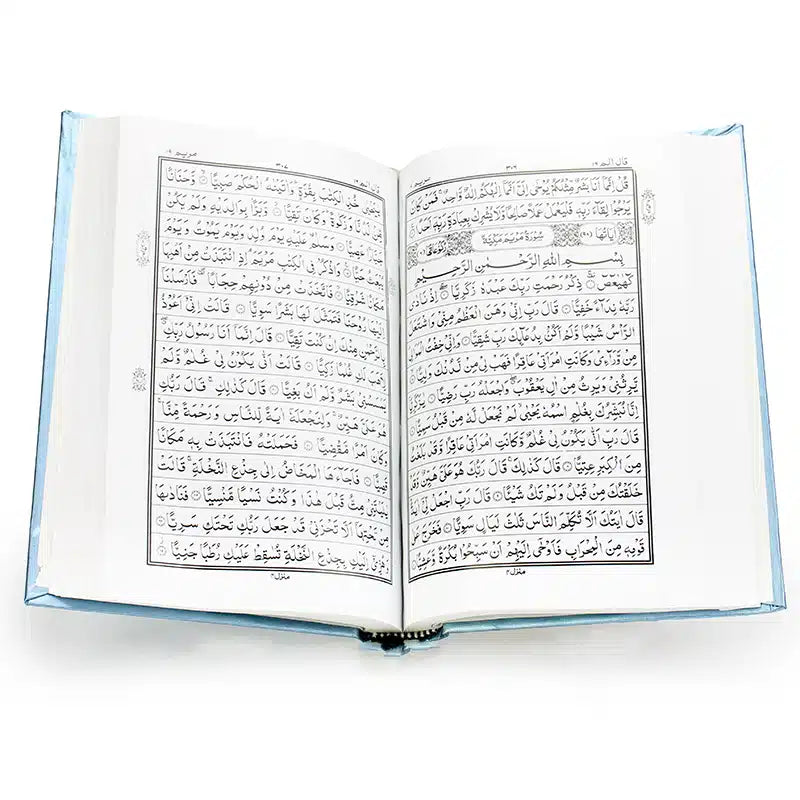 قال الم ١٦
٣٠٦
مريم ١٩
قُلْ اِنَّمَاۤ اَنَا بَشَرٌ مِّثْلُكُمْ يُوْحٰۤى اِلَيَّ اَنَّمَاۤ اِلٰهُكُمْ اِلٰهٌ وَّاحِدٌ ۚ فَمَنْ كَانَ
يَرْجُوْا لِقَآءَ رَبِّهٖ فَلْيَعْمَلْ عَمَلًا صَالِحًا وَّلَا يُشْرِكْ بِعِبَادَةِ رَبِّهٖۤ اَحَدًا
اٰيَاتُهَا سُوْرَةُ مَرْيَمَ مَكِّيَّةٌ رُكُوْعَاتُهَا
بِسْمِ اللّٰهِ الرَّحْمٰنِ الرَّحِيْمِ
كٓهٰيٰعٓصٓ ذِكْرُ رَحْمَتِ رَبِّكَ عَبْدَهٗ زَكَرِيَّا اِذْ نَادٰى
رَبَّهٗ نِدَآءً خَفِيًّا قَالَ رَبِّ اِنِّيْ وَهَنَ الْعَظْمُ مِنِّيْ وَاشْتَعَلَ
الرَّاْسُ شَيْبًا وَّلَمْ اَكُنْۢ بِدُعَآئِكَ رَبِّ شَقِيًّا وَاِنِّيْ خِفْتُ الْمَوَالِيَ
مِنْ وَّرَآءِيْ وَكَانَتِ امْرَاَتِيْ عَاقِرًا فَهَبْ لِيْ مِنْ لَّدُنْكَ وَلِيًّا
يَّرِثُنِيْ وَيَرِثُ مِنْ اٰلِ يَعْقُوْبَ وَاجْعَلْهُ رَبِّ رَضِيًّا يٰزَكَرِيَّاۤ
اِنَّا نُبَشِّرُكَ بِغُلٰمِ اۨسْمُهٗ يَحْيٰى لَمْ نَجْعَلْ لَّهٗ مِنْ قَبْلُ سَمِيًّا
قَالَ رَبِّ اَنّٰى يَكُوْنُ لِيْ غُلٰمٌ وَّكَانَتِ امْرَاَتِيْ عَاقِرًا وَّقَدْ بَلَغْتُ
مِنَ الْكِبَرِ عِتِيًّا قَالَ كَذٰلِكَ ۚ قَالَ رَبُّكَ هُوَ عَلَيَّ هَيِّنٌ وَّقَدْ
خَلَقْتُكَ مِنْ قَبْلُ وَلَمْ تَكُ شَيْئًا قَالَ رَبِّ اجْعَلْ لِّيْۤ اٰيَةً
قَالَ اٰيَتُكَ اَلَّا تُكَلِّمَ النَّاسَ ثَلٰثَ لَيَالٍ سَوِيًّا فَخَرَجَ عَلٰى
قَوْمِهٖ مِنَ الْمِحْرَابِ فَاَوْحٰۤى اِلَيْهِمْ اَنْ سَبِّحُوْا بُكْرَةً وَّعَشِيًّا
منزل
قال الم ١٦
٣٠٧
مريم ١٩
يٰيَحْيٰى خُذِ الْكِتٰبَ بِقُوَّةٍ ۗ وَاٰتَيْنٰهُ الْحُكْمَ صَبِيًّا وَّحَنَانًا
مِّنْ لَّدُنَّا وَزَكٰوةً ۗ وَكَانَ تَقِيًّا وَّبَرًّۢا بِوَالِدَيْهِ وَلَمْ يَكُنْ
جَبَّارًا عَصِيًّا وَسَلٰمٌ عَلَيْهِ يَوْمَ وُلِدَ وَيَوْمَ يَمُوْتُ وَيَوْمَ
يُبْعَثُ حَيًّا وَاذْكُرْ فِي الْكِتٰبِ مَرْيَمَ ۘ اِذِ انْتَبَذَتْ مِنْ اَهْلِهَا
مَكَانًا شَرْقِيًّا فَاتَّخَذَتْ مِنْ دُوْنِهِمْ حِجَابًا ۗ فَاَرْسَلْنَاۤ
اِلَيْهَا رُوْحَنَا فَتَمَثَّلَ لَهَا بَشَرًا سَوِيًّا قَالَتْ اِنِّيْۤ اَعُوْذُ
بِالرَّحْمٰنِ مِنْكَ اِنْ كُنْتَ تَقِيًّا قَالَ اِنَّمَاۤ اَنَا رَسُوْلُ رَبِّكِ
لِاَهَبَ لَكِ غُلٰمًا زَكِيًّا قَالَتْ اَنّٰى يَكُوْنُ لِيْ غُلٰمٌ وَّلَمْ
يَمْسَسْنِيْ بَشَرٌ وَّلَمْ اَكُ بَغِيًّا قَالَ كَذٰلِكِ ۚ قَالَ رَبُّكِ
هُوَ عَلَيَّ هَيِّنٌ ۚ وَلِنَجْعَلَهٗۤ اٰيَةً لِّلنَّاسِ وَرَحْمَةً مِّنَّا ۚ
وَكَانَ اَمْرًا مَّقْضِيًّا فَحَمَلَتْهُ فَانْتَبَذَتْ بِهٖ مَكَانًا
قَصِيًّا فَاَجَآءَهَا الْمَخَاضُ اِلٰى جِذْعِ النَّخْلَةِ ۚ قَالَتْ
يٰلَيْتَنِيْ مِتُّ قَبْلَ هٰذَا وَكُنْتُ نَسْيًا مَّنْسِيًّا فَنَادٰىهَا
مِنْ تَحْتِهَاۤ اَلَّا تَحْزَنِيْ قَدْ جَعَلَ رَبُّكِ تَحْتَكِ سَرِيًّا
وَهُزِّيْۤ اِلَيْكِ بِجِذْعِ النَّخْلَةِ تُسٰقِطْ عَلَيْكِ رُطَبًا جَنِيًّا
منزل